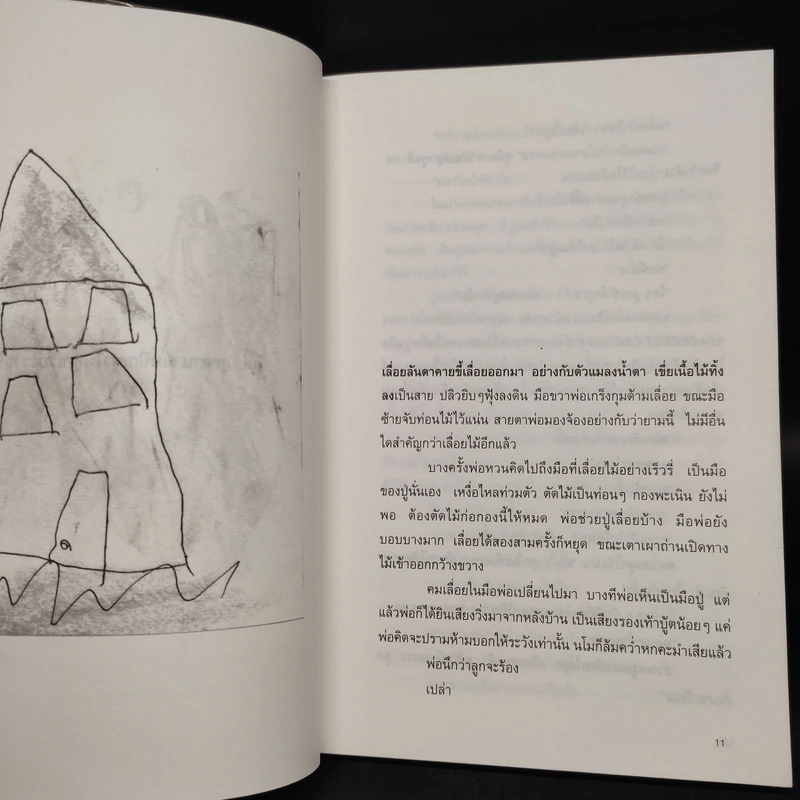 เลื่อยลันดาคายขี้เลื่อยออกมา อย่างกับตัวแมลงน้ำตา เขี่ยเนื้อไม้ทิ้ง
ลงเป็นสาย ปลิวยิบๆฟุ้งลงดิน มือขวาพ่อเกร็งกุมด้ามเลื่อย ขณะมือ
ซ้ายจับท่อนไม้ไว้แน่น สายตาพ่อมองจ้องอย่างกับว่ายามนี้ ไม่มีอื่น
ใดสำคัญกว่าเลื่อยไม้อีกแล้ว
บางครั้งพ่อหวนคิดไปถึงมือที่เลื่อยไม้อย่างเร็วรี่ เป็นมือ
ของปู่นั่นเอง เหงื่อไหลท่วมตัว ตัดไม้เป็นท่อนๆ กองพะเนิน ยังไม่
พอ ต้องตัดไม้ก่อกองนี้ให้หมด พ่อช่วยปู่เลื่อยบ้าง มือพ่อยัง
บอบบางมาก เลื่อยได้สองสามครั้งก็หยุด ขณะเตาเผาถ่านเปิดทาง
ไม้เข้าออกกว้างขวาง
คมเลื่อยในมือพ่อเปลี่ยนไปมา บางทีพ่อเห็นเป็นมือปู่ แต่
แล้วพ่อก็ได้ยินเสียงวิ่งมาจากหลังบ้าน เป็นเสียงรองเท้าบู้ตน้อยๆ แค่
พ่อคิดจะปรามห้ามบอกให้ระวังเท่านั้น นโมก็ล้มคว่ำหกคะมำเสียแล้ว
พ่อนึกว่าลูกจะร้อง
เปล่า
11